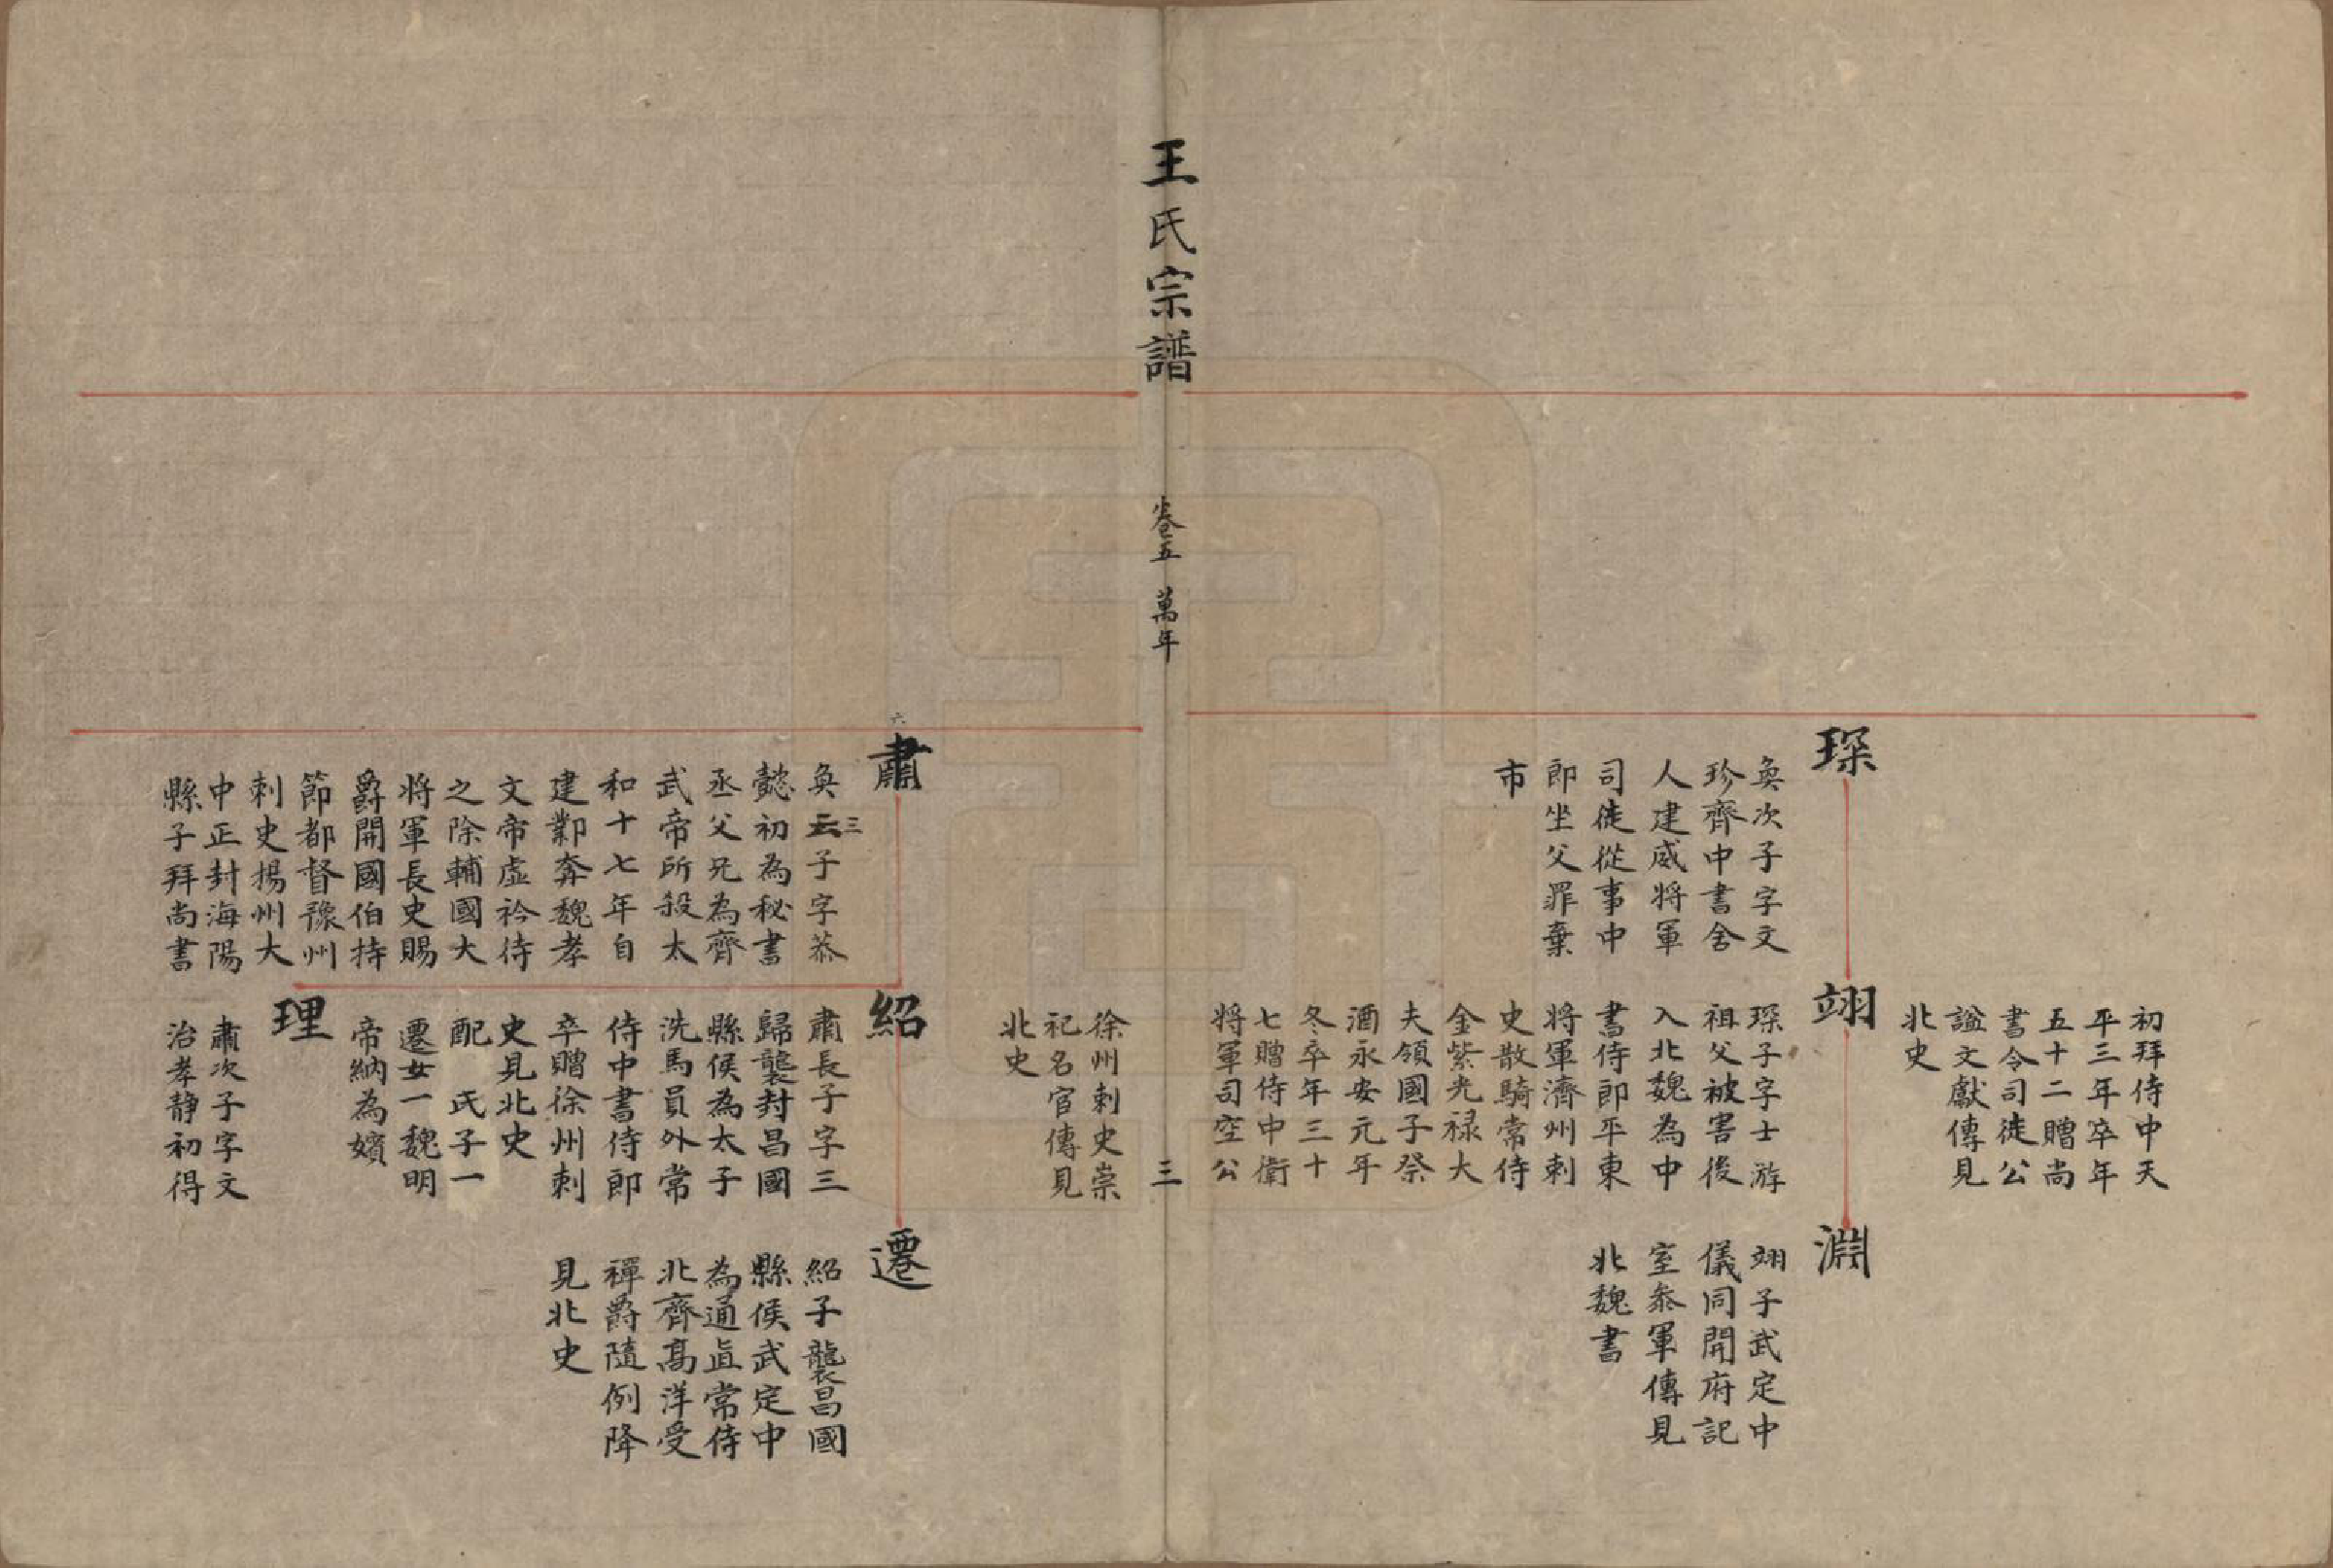 初拜侍中天
平三年卒年
五十二贈尚
書令司徒公
諡文獻傳見
北史
琛
奐次子字文
珍齊中書舍
人建威將軍
司徒從事中
郎坐父罪棄
市
翊
琛子字士游
祖父被害後
入北魏為中
書侍郎平東
將軍濟州刺
史散騎常侍
金紫光禄大
夫領國子祭
酒永安元年
冬卒年三十
七贈侍中衛
將軍司空公
徐州刺史崇
祀名宦傳見
北史
淵
翊子武定中
儀同開府記
室叅軍傳見
北魏書
王氏宗譜
卷五
萬年
三
六
肅
奐三子字恭
懿初為秘書
丞父兄為齊
武帝所殺太
和十七年自
建鄴奔魏孝
文帝虛衿待
之除輔國大
將軍長史賜
爵開國伯持
節都督豫州
刺史揚州大
中正封海陽
縣子拜尚書
紹
肅長子字三
歸襲封昌國
縣侯為太子
洗馬員外常
侍中書侍郎
卒贈徐州刺
史見北史
配　氏子一
遷女一魏明
帝納為嬪
理
肅次子字文
治孝静初得
遷
紹子襲昌國
縣侯武定中
為通直常侍
北齊高洋受
禪爵隨例降
見北史